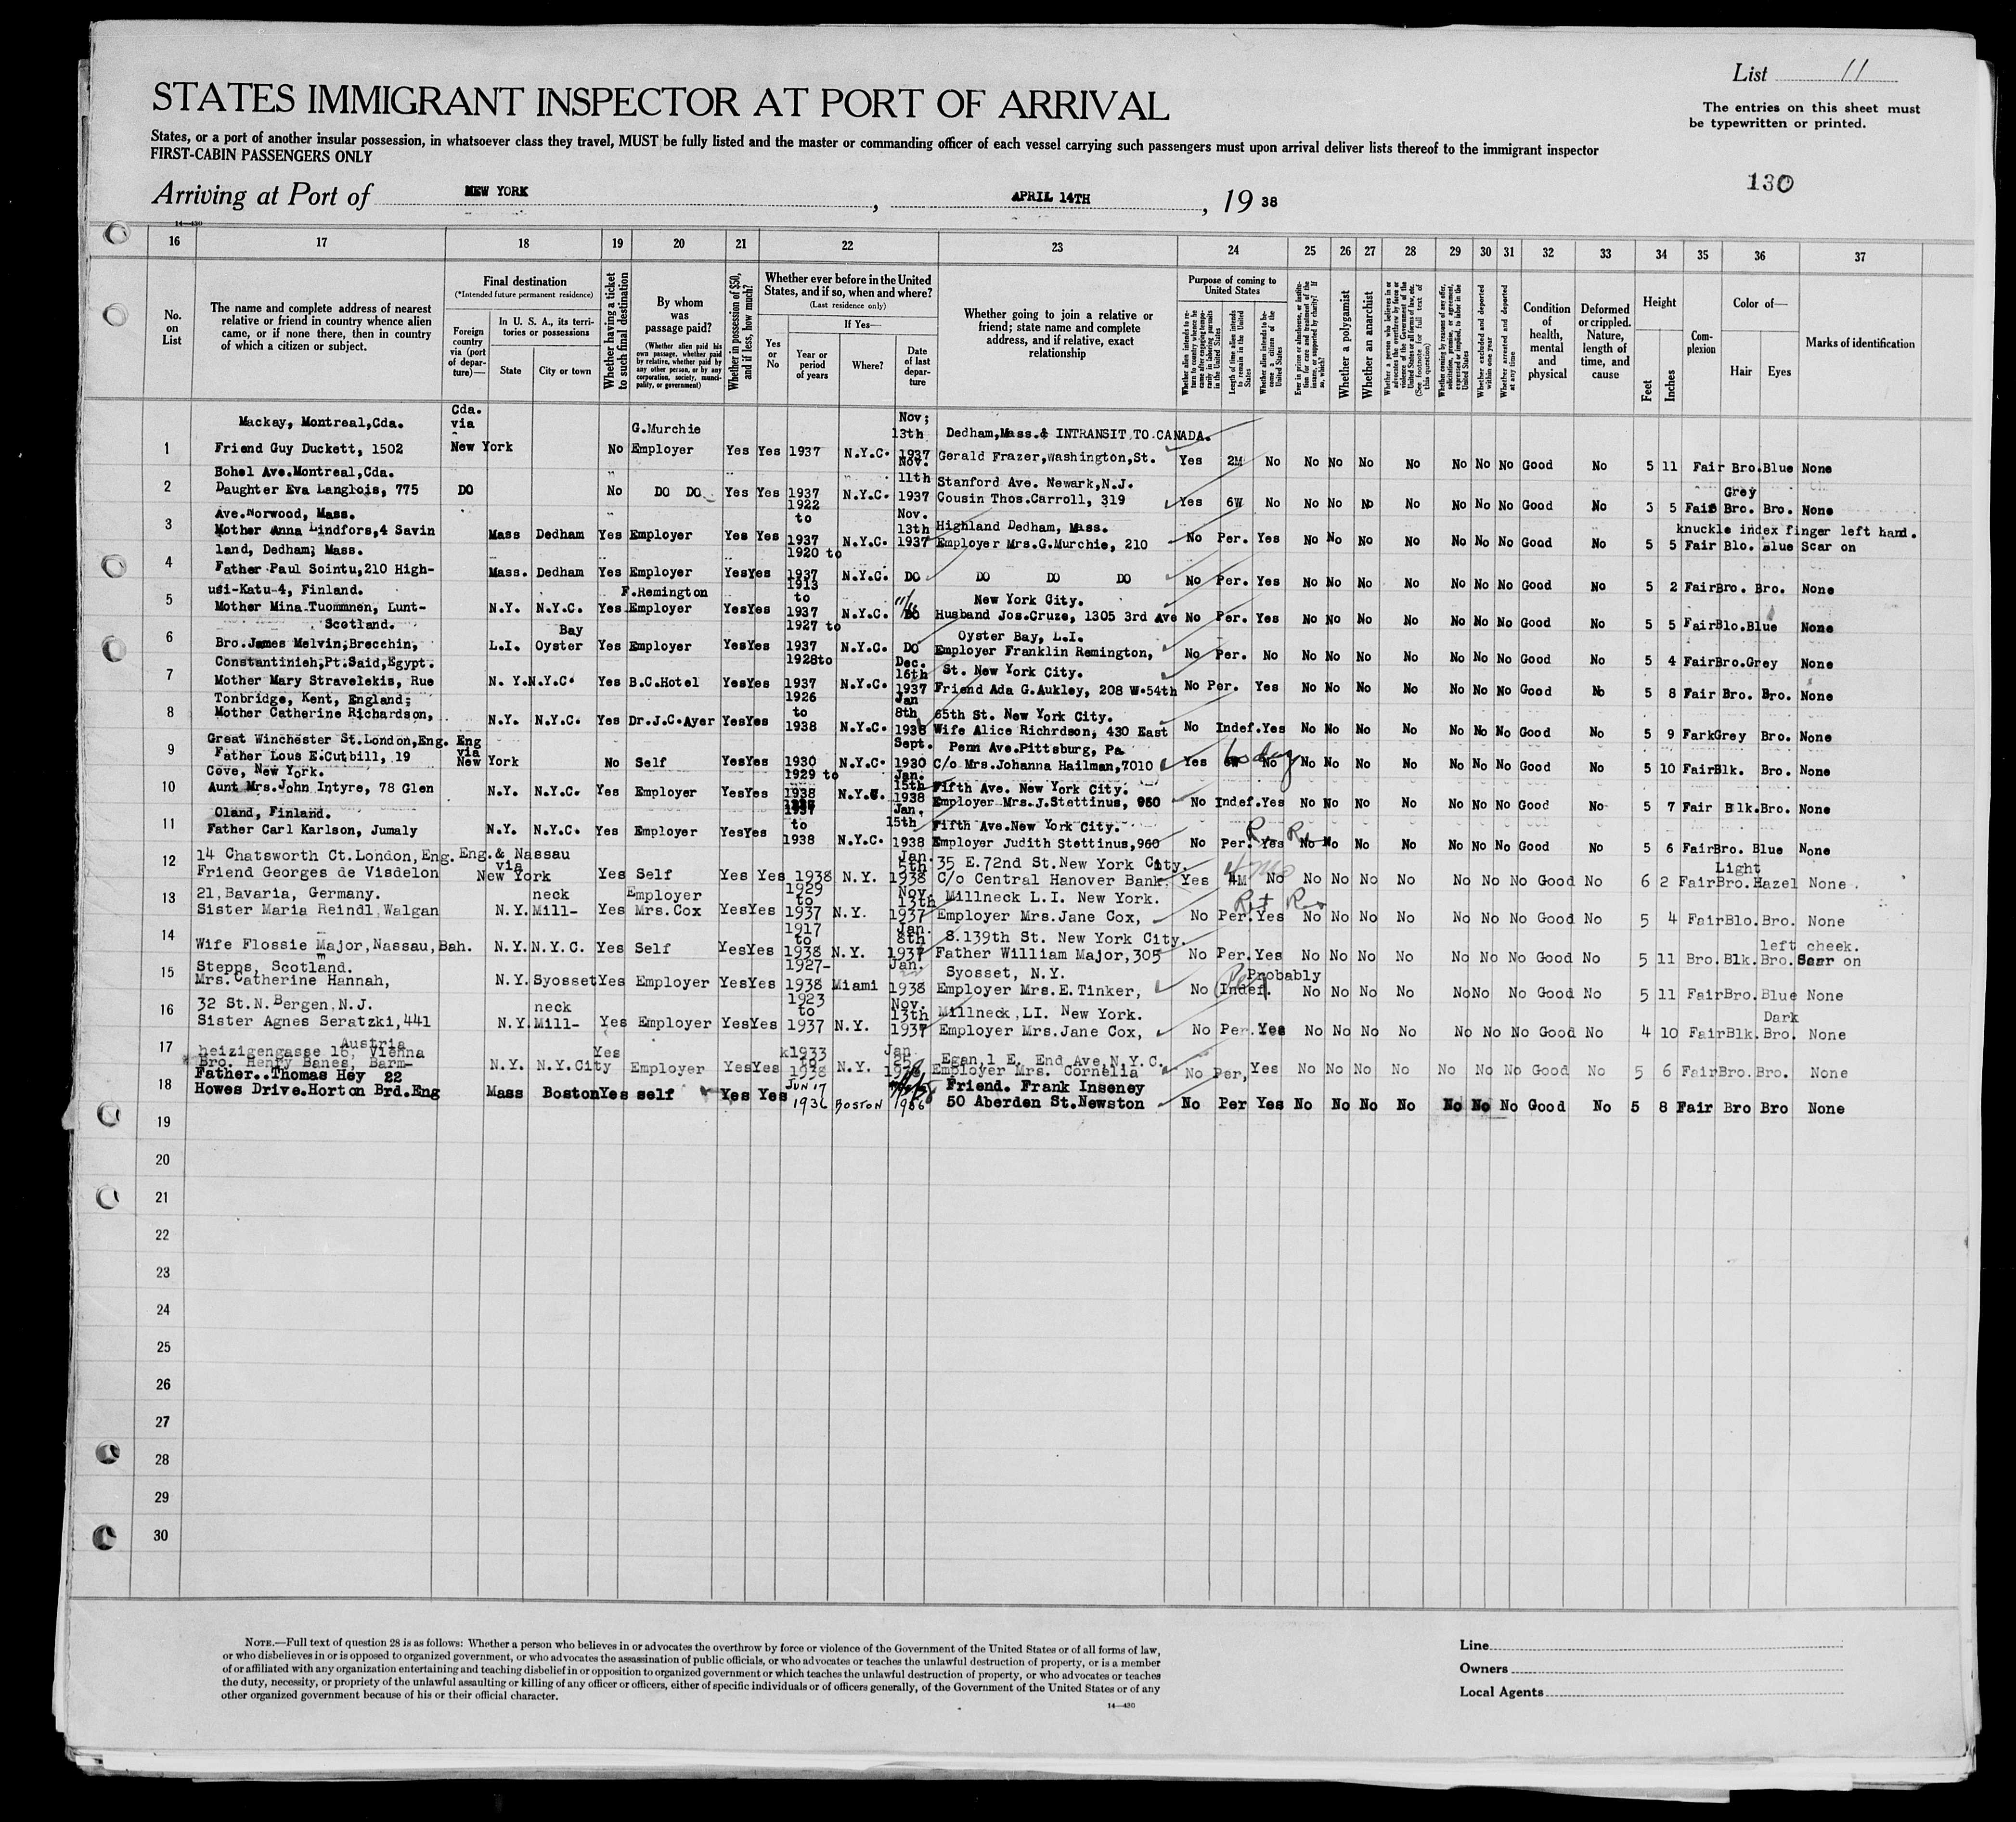 List 11
STATES IMMIGRANT INSPECTOR AT PORT OF ARRIVAL
The entries on this sheet must
be typewritten or printed.
States, or a port of another insular possession, in whatsoever class they travel, MUST be fully listed and the master or commanding officer of each vessel carrying such passengers must upon arrival deliver lists thereof to the immigrant inspector
FIRST-CABIN PASSENGERS ONLY
130
Arriving at Port of NEW YORK, APRIL 14TH, 19 38
14—430
16 17 18 19 20 21 22 23 24 25 26 27 28 29 30 31 32 33 34 35 36 37
No. on List
The name and complete address of nearest
relative or friend in country whence alien
came, or if none there, then in country
of which a citizen or subject.
Final destination
(*Intended future permanent residence)
Foreign country via (port of departure)—
In U. S. A., its territories or possessions
State
City or town
Whether having a ticket to such final destination
By whom was passage paid?
(Whether alien paid his own passage, whether paid by relative, whether paid by any other person, or by any corporation, society, municipality, or government)
Whether in possession of $50, and if less, how much?
Whether ever before in the United States, and if so, when and where?
(Last residence only)
Yes or No
If Yes—
Year or period of years
Where?
Date of last departure
Whether going to join a relative or
friend; state name and complete
address, and if relative, exact
relationship
Purpose of coming to United States
Length of time alien intends to remain in the United States
Whether alien intends to become a citizen of the United States
Whether a polygamist
Whether an anarchist
Whether excluded and deported within one year
Whether arrested and deported at any time
Condition of health, mental and physical
Deformed or crippled. Nature, length of time, and cause
Height
Feet
Inches
Complexion
Color of—
Hair
Eyes
Marks of identification
Mackay, Montreal,Cda. Cda. via G.Murchie Nov; 13th Dedham,Mass.& INTRANSIT TO CANADA.
1 Friend Guy Duckett, 1502 New York No Employer Yes Yes 1937 N.Y.C. 1937 Gerald Frazer,Washington,St. Yes 2M No No No No No No No No Good No 5 11 Fair Bro. Blue None
Bohel Ave.Montreal,Cda. Nov. 11th Stanford Ave. Newark,N.J.
2 Daughter Eva Langlois, 775 DO No DO DO Yes Yes 1937 N.Y.C. 1937 Cousin Thos.Carroll, 319 Yes 6W No No No No No No No No Good No 5 5 Fair Grey Bro. Bro. None
Ave.Norwood, Mass. 1922 to Nov. 13th Highland Dedham, Mass. knuckle index finger left hand.
3 Mother Anna Lindfors,4 Savin Mass Dedham Yes Employer Yes Yes 1937 N.Y.C. 1937 Employer Mrs.G.Murchie, 210 No Per. Yes No No No No No No No Good No 5 5 Fair Blo. Blue Scar on
land, Dedham; Mass. 1920 to
4 Father Paul Sointu,210 High- Mass. Dedham Yes Employer Yes Yes 1937 N.Y.C. DO DO DO DO No Per. Yes No No No No No No No Good No 5 2 Fair Bro. Bro. None
usi-Katu-4, Finland. F.Remington 1913 to 11/6 New York City.
5 Mother Mina Tuommnen, Lunt- N.Y. N.Y.C. Yes Employer Yes Yes 1937 N.Y.C. DO Husband Jos.Cruze, 1305 3rd Ave No Per. Yes No No No No No No No Good No 5 5 Fair Blo. Blue None
Scotland. Bay 1927 to Oyster Bay, L.I.
6 Bro.James Melvin;Brecchin, L.I. Oyster Yes Employer Yes Yes 1937 N.Y.C. DO Employer Franklin Remington, No Per. No No No No No No No No Good No 5 4 Fair Bro. Grey None
Constantinieh,Pt.Said,Egypt. 1928to Dec. 16th St. New York City.
7 Mother Mary Stravelekis, Rue N. Y. N.Y.C. Yes B.C.Hotel Yes Yes 1937 N.Y.C. 1937 Friend Ada G.Aukley, 208 W.54th No Per. Yes No No No No No No No Good No 5 8 Fair Bro. Bro. None
Tonbridge, Kent, England; 1926 to Jan 8th 65th St. New York City.
8 Mother Catherine Richardson, N.Y. N.Y.C. Yes Dr.J.C.Ayer Yes Yes 1938 N.Y.C. 1938 Wife Alice Richrdson, 430 East No Indef. Yes No No No No No No No Good No 5 9 Fark Grey Bro. None
Great Winchester St.London,Eng. Eng via Sept. Penn Ave.Pittsburg, Pa
9 Father Lous E.Cutbill, 19 New York No Self Yes Yes 1930 N.Y.C. 1930 C/o Mrs.Johanna Hailman,7010 Yes No No No No No No No No Good No 5 10 Fair Blk. Bro. None
Cove, New York. 1929 to Jan. 15th Fifth Ave. New York City.
10 Aunt Mrs.John Intyre, 78 Glen N.Y. N.Y.C. Yes Employer Yes Yes 1938 1938 Employer Mrs.J.Stettinus, 960 No Indef. Yes No No No No No No No Good No 5 7 Fair Blk. Bro. None
Oland, Finland. 1937 to Jan. 15th Fifth Ave.New York City.
11 Father Carl Karlson, Jumaly N.Y. N.Y.C. Yes Employer Yes Yes 1938 N.Y.C. 1938 Employer Judith Stettinus,960 No Per. Yes No No No No No No No Good No 5 6 Fair Bro. Blue None
14 Chatsworth Ct.London,Eng. Eng.& Nassau via Jan. 5th 35 E.72nd St.New York City. Light
12 Friend Georges de Visdelon New York Yes Self Yes Yes 1938 N.Y. 1938 C/o Central Hanover Bank, Yes 4M No No No No No No No No Good No 6 2 Fair Bro. Hazel None
21,Bavaria, Germany. neck Employer 1929 to Nov. 13th Millneck L.I. New York.
13 Sister Maria Reindl,Walgan N.Y. Mill- Yes Mrs.Cox Yes Yes 1937 N.Y. 1937 Employer Mrs.Jane Cox, No Per. Yes No No No No No No No Good No 5 4 Fair Blo. Bro. None
1917 to Jan. 8th S.139th St. New York City. left cheek.
14 Wife Flossie Major,Nassau,Bah. N.Y. N.Y.C. Yes Self Yes Yes 1938 N.Y. 1937 Father William Major,305 No Per. Yes No No No No No No No Good No 5 11 Bro. Blk. Bro. Scar on
Stepps, Scotland. 1927- Jan. Syosset, N.Y. Probably
15 Mrs.Catherine Hannah, N.Y. Syosset Yes Employer Yes Yes 1938 Miami 1938 Employer Mrs.E.Tinker, No Indef. No No No No No No No Good No 5 11 Fair Bro. Blue None
32 St.N.Bergen,N.J. neck 1923 to Nov. 13th Millneck,LI. New York. Dark
16 Sister Agnes Seratzki,441 N.Y. Mill- Yes Employer Yes Yes 1937 N.Y. 1937 Employer Mrs.Jane Cox, No Per. Yes No No No No No No No Good No 4 10 Fair Blk. Bro. None
Austria
heizigengasse 16, Vienna Yes k1933 to Jan Egan,1 E. End Ave,N.Y.C.
17 Bro. Henry Banes, Barm- N.Y. N.Y.City Employer Yes Yes 1938 N.Y. Employer Mrs. Cornelia No Per, Yes No No No No No No No Good No 5 6 Fair Bro. Bro. None
Father..Thomas Hey 22 JUN 17 Friend. Frank Inseney
18 Howes Drive.Horton Brd.Eng Mass Boston Yes self Yes Yes 1936 BOSTON 50 Aberden St.Newston No Per Yes No No No No No No No Good No 5 8 Fair Bro Bro None
19
20
21
22
23
24
25
26
27
28
29
30
NOTE.—Full text of question 28 is as follows: Whether a person who believes in or advocates the overthrow by force or violence of the Government of the United States or of all forms of law,
or who disbelieves in or is opposed to organized government, or who advocates the assassination of public officials, or who advocates or teaches the unlawful destruction of property, or is a member
of or affiliated with any organization entertaining and teaching disbelief in or opposition to organized government or which teaches the unlawful destruction of property, or who advocates or teaches
the duty, necessity, or propriety of the unlawful assaulting or killing of any officer or officers, either of specific individuals or of officers generally, of the Government of the United States or of any
other organized government because of his or their official character.
14—430
Line
Owners
Local Agents